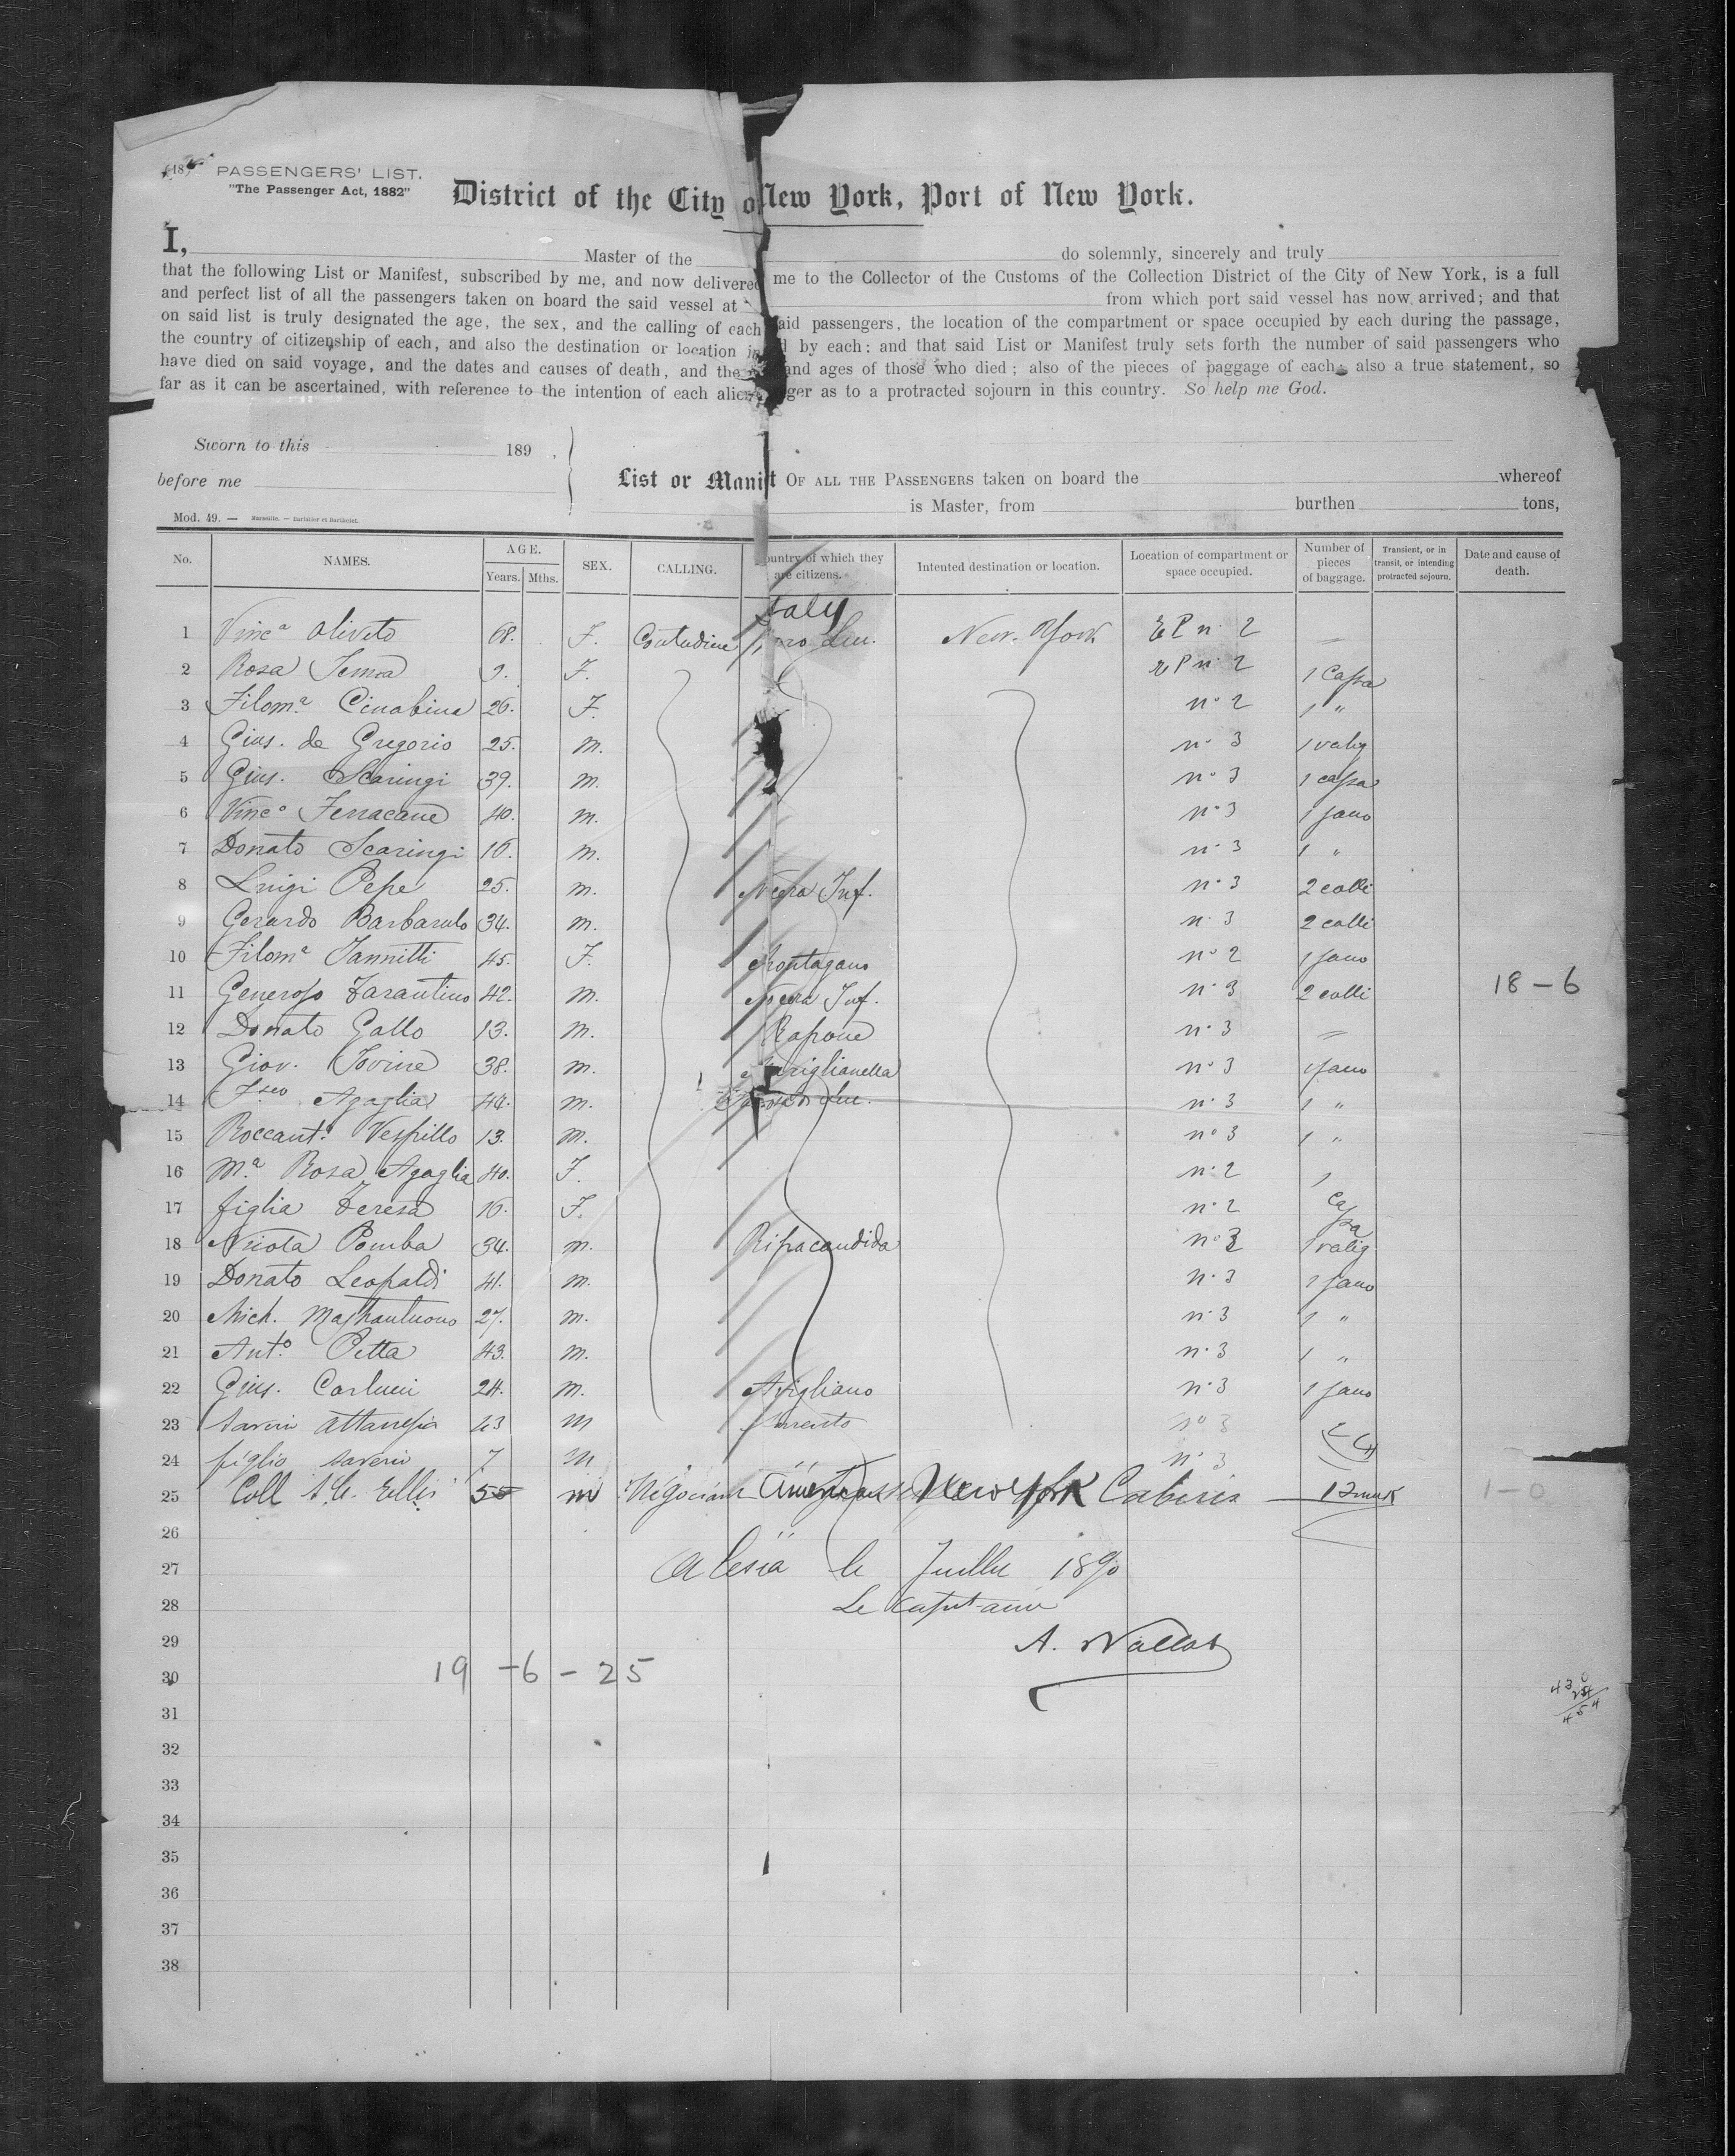 PASSENGERS' LIST.
"The Passenger Act, 1882"
District of the City o New York, Port of New York.
I, Master of the do solemnly, sincerely and truly
that the following List or Manifest, subscribed by me, and now delivered me to the Collector of the Customs of the Collection District of the City of New York, is a full
and perfect list of all the passengers taken on board the said vessel at from which port said vessel has now arrived; and that
on said list is truly designated the age, the sex, and the calling of each said passengers, the location of the compartment or space occupied by each during the passage,
the country of citizenship of each, and also the destination or location in by each; and that said List or Manifest truly sets forth the number of said passengers who
have died on said voyage, and the dates and causes of death, and the and ages of those who died; also of the pieces of baggage of each, also a true statement, so
far as it can be ascertained, with reference to the intention of each alien ger as to a protracted sojourn in this country. So help me God.
Sworn to this 189 ,
before me
List or Manif t OF ALL THE PASSENGERS taken on board the whereof
is Master, from burthen tons,
Mod. 49. — Marseille. — Barlatier et Barthelet.
No. NAMES. AGE. Years. Mths. SEX. CALLING. Country of which they are citizens. Intented destination or location. Location of compartment or space occupied. Number of pieces of baggage. Transient, or in transit, or intending protracted sojourn. Date and cause of death.
Italy
1 Vinc.a Oliveto 68. F. Contadine New-York E P n. 2
2 Rosa 9. F. E P n. 2 1 Cassa
3 Filom.a 26. F. n. 2 1 "
4 Gius. de Gregorio 25. m. n. 3 1 valig
5 Gius. Scaringi 39. m. n. 3 1 cassa
6 Vinc.o Ferracane 40. m. n. 3 1 sano
7 Donato Scaringi 16. m. n. 3 1 "
8 Luigi Pepe 25. m. Nocera Inf. n. 3 2 colli
9 Gerardo Barbarulo 34. m. n. 3 2 colli
10 Filom.a Iannitti 45. F. Montagano n. 2 1 sano
11 Generoso Tarantino 42. m. Nocera Inf. n. 3 2 colli 18-6
12 Donato Gallo 13. m. Rapone n. 3
13 Giov. Iovine 38. m. Mariglianella n. 3 1 sano
14 F.sco Agaglia 44. m. n. 3 1 "
15 Roccant.o Vespillo 13. m. n. 3 1 "
16 M.a Rosa Agaglia 40. F. n. 2 1
17 figlia Teresa 16. F. n. 2 Cassa
18 Pomba 34. m. Ripacandida n. 3 1 valig
19 Donato Leopaldi 41. m. n. 3 1 sano
20 Mich. Mastrantuono 27. m. n. 3 1 "
21 Ant.o Petta 43. m. n. 3 1 "
22 Gius. Carlucci 24. m. Avigliano n. 3 1 sano
23 43 m Sorrento no 3
24 figlio Saverio 7 m n. 3
25 Coll Ellis 55 m Négociant New York Cabines 1-0
26
27 Alesia le Juillet 1890
28 Le Capitaine
29 A.
30 19-6-25
430
24
454
31
32
33
34
35
36
37
38